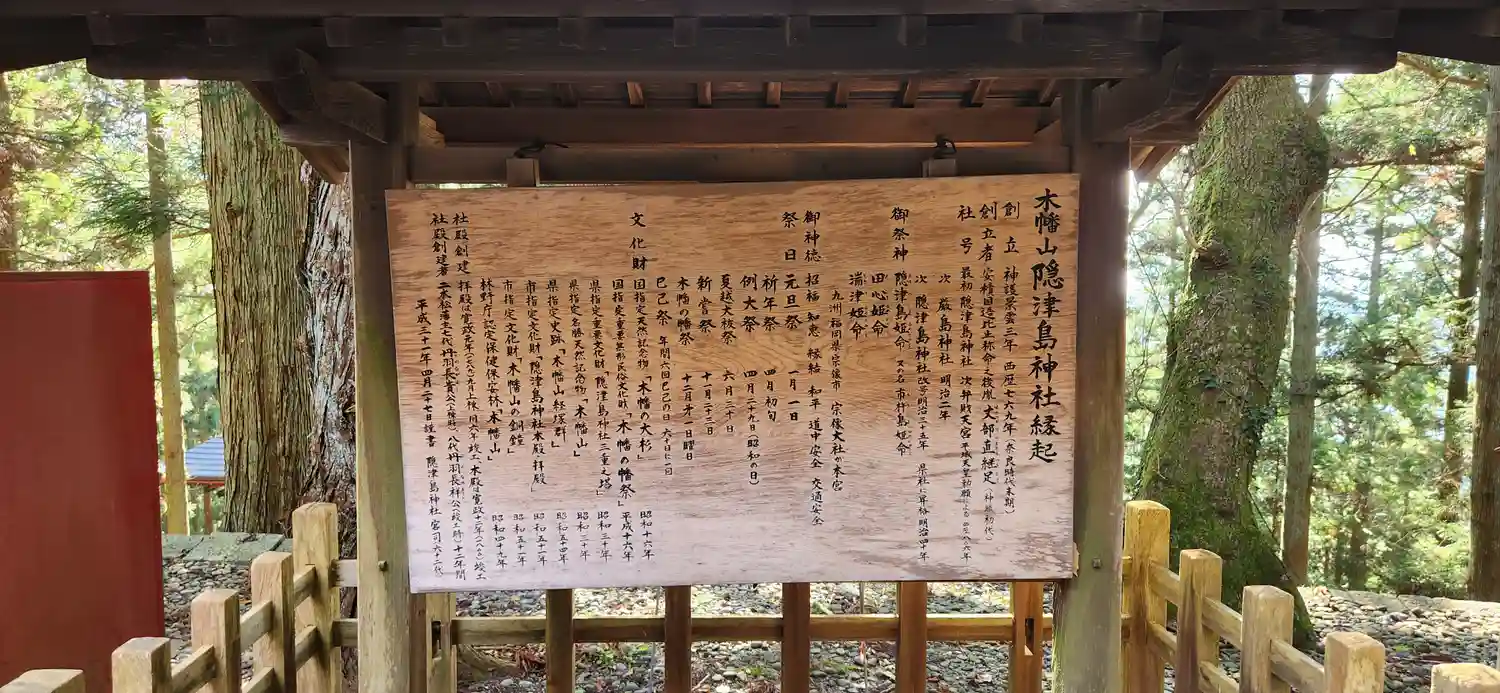 木幡山 隠津島神社縁起
創立 神護景雲三年 西暦七六九年(奈良時代末期)
創立者 安積国造比止祢命之後胤 丈部直継足(神職初代)
社号 最初 隠津島神社 次 弁財天宮 平城天皇勅願による 四至八六年
次 厳島神社 明治二年
次 隠津島神社 改号明治三十五年 県社に昇格明治四十年
御祭神 隠津島姫命 又の名 市杵島姫命
田心姫命
湍津姫命
九州・福岡県宗像市 宗像大社が本宮
御神徳 招福 知恵 縁結 和平 道中安全 交通安全
祭日 元旦祭 一月一日
祈年祭 四月初旬
例大祭 四月二十九日(昭和の日)
夏越大祓祭 六月三十日
新嘗祭 十一月二十三日
木幡の幡祭 十二月第一日曜日
巳巳祭 年間六回己巳の日 六十日に一回
文化財 国指定天然記念物「木幡の大杉」 昭和十六年
国指定重要無形民俗文化財「木幡の幡祭」 平成十六年
県指定重要文化財「隠津島神社三重之塔」 昭和三十年
県指定名勝天然記念物「木幡山」 昭和三十年
県指定史跡「木幡山経塚群」 昭和五十四年
市指定文化財「隠津島神社本殿拝殿」 昭和五十一年
市指定文化財「木幡山の銅鐘」 昭和五十一年
林野庁認定保健保安林「木幡山」 昭和四十九年
社殿創建 拝殿は寛政元年(一七八九)上棟、同六年竣工、本殿は寛政十二年(一八〇〇)竣工
社殿創建者 二本松藩主七代丹羽長貴公(上棟時)、八代丹羽長祥公(竣工時)十二年間
平成三十一年四月二十七日謹書 隠津島神社 宮司六十二代